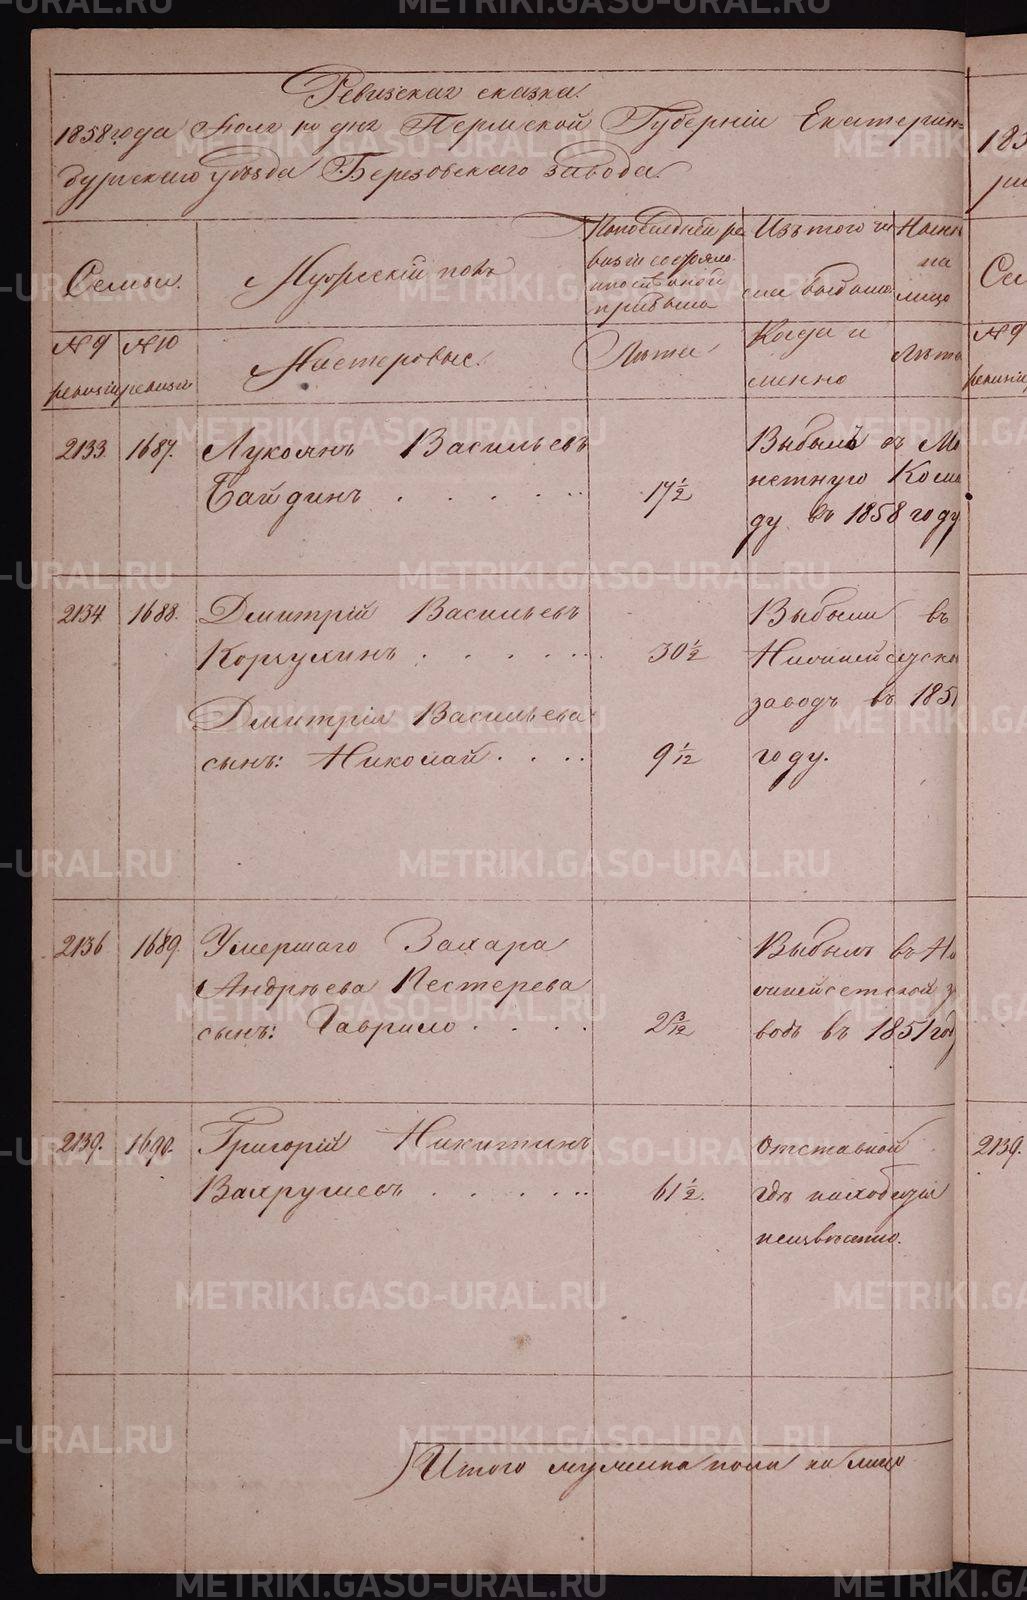 Ревизская сказка.
1858 года Іюля по дня Пермской Губерніи Екатерин=
бургскаго уѣзда Березовскаго завода.
Семьи.
Мужескій полъ
По последней ре
визіи состояло
и после оной
прибыло
Изъ того чи
сла выбыло
Ныне
на
лицо
№ 9 ревизіи
№ 10 ревизіи
Мастеровые.
Лѣта
Когда и
именно
Лѣта
2133 1687. Лукоянъ Васильевъ
Байдинъ . . . . . . 17 1/2
Выбылъ въ Мо
нетную Коман
ду въ 1858 году
2134 1688. Дмитрій Васильевъ
Корзухинъ . . . . . . 30 1/2
Дмитрія Васильева
сынъ: Николай . . . . 9 1/12
Выбыли въ
Нижнейсетской
заводъ въ 1851
году.
2136 1689. Умершаго Захара
Андрѣева Пестерева
сынъ: Гаврило . . . .
Выбылъ въ Ни
жнейсетской за
водъ въ 1851 году
2139. 1690. Григорій Никитинъ
Вахрушевъ . . . . . . 61 1/2.
Отставной
гдѣ находится
неизвѣстно.
Итого мужеска пола на лицо
185
№ 9
ревизіи
2139.
METRIKI.GASO-URAL.RU